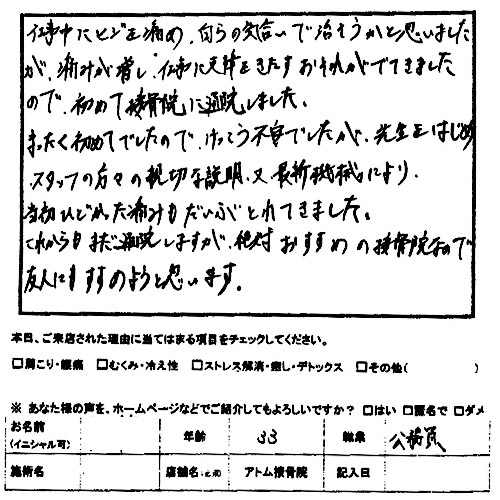 仕事中にヒザを痛め、自らの気合いで治そうかと思いました
が、痛みが増し、仕事に支障をきたすおそれがでてきました
ので、初めて接骨院に通院しました。
まったく初めてでしたので、けっこう不安でしたが、先生をはじめ
スタッフの方々の親切な説明、又最新機械により、
当初ひどかった痛みもだいぶとれてきました。
これからもまだ通院しますが、絶対おすすめの接骨院なので
友人にもすすめようと思います。
本日、ご来店された理由に当てはまる項目をチェックしてください。
□肩こり・腰痛 □むくみ・冷え性 □ストレス解消・癒し・デトックス □その他( )
※ あなた様の声を、ホームページなどでご紹介してもよろしいですか? □はい □匿名で □ダメ
お名前 年齢 33 職業 公務員
(イニシャル可)
施術名 店舗名 アトム接骨院 記入日